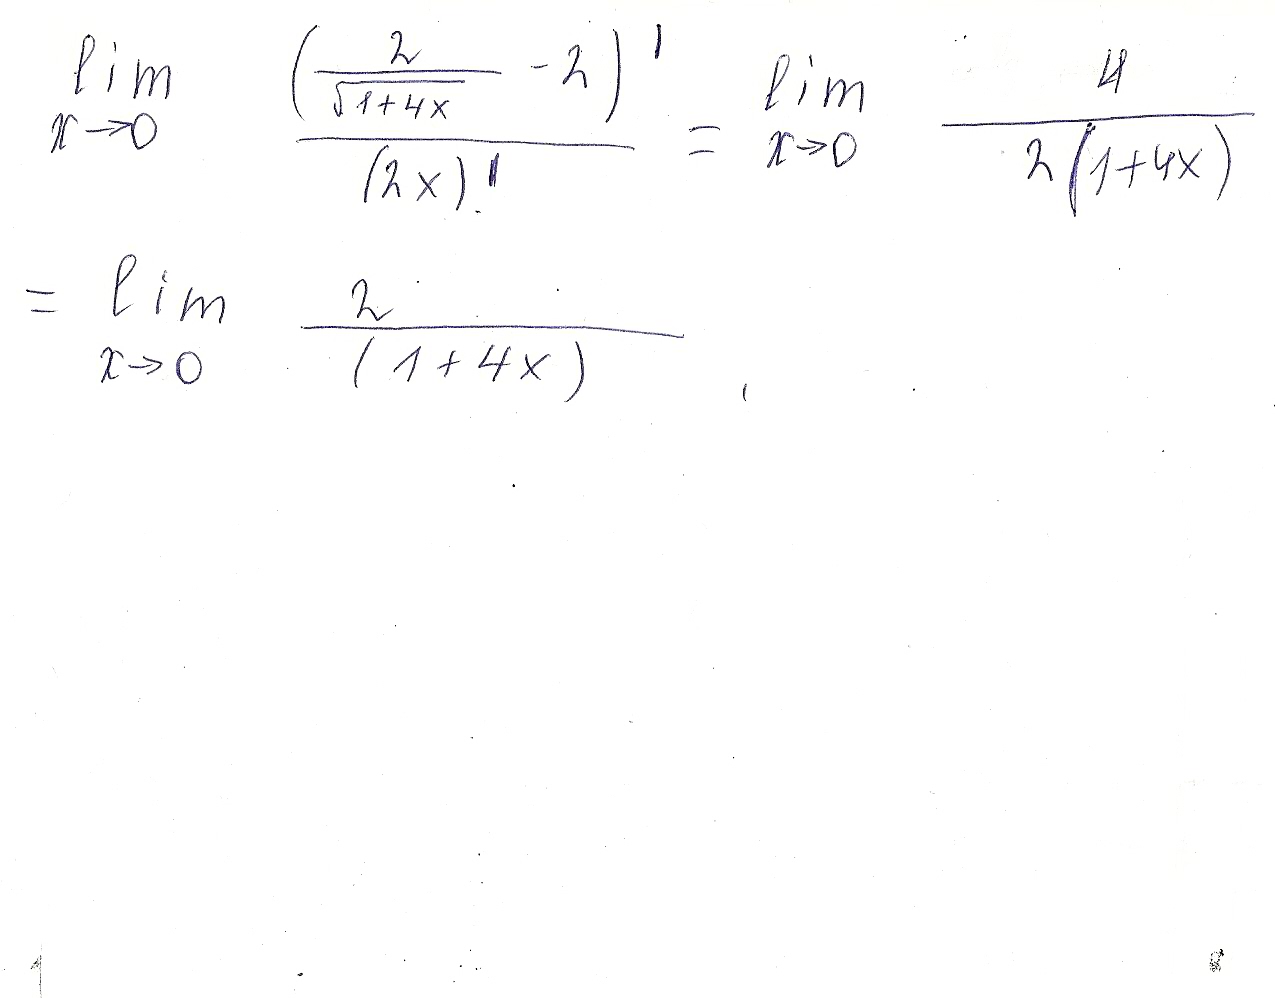 lim x→0 (2/√(1+4x) - 2)' / (2x)' = lim x→0 4 / 2(1+4x)
= lim x→0 2 / (1+4x)